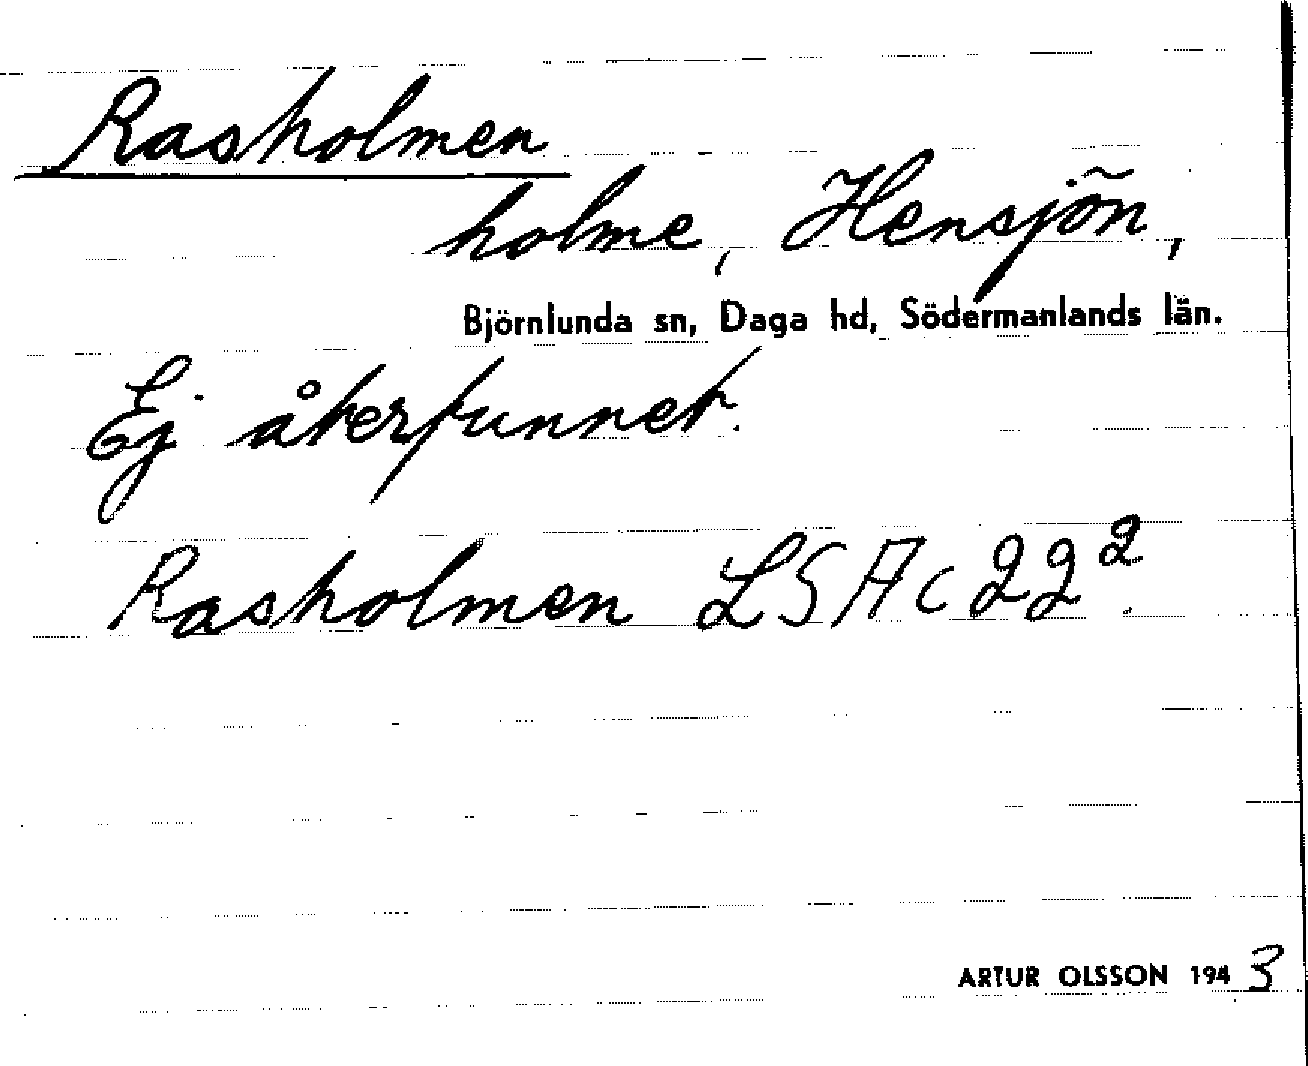 Rasholmen
holme, Hensjön,
Björnlunda sn, Daga hd, Södermanlands län.
Ej återfunnet.
Rasholmen LSA c 22²
ARTUR OLSSON 1943